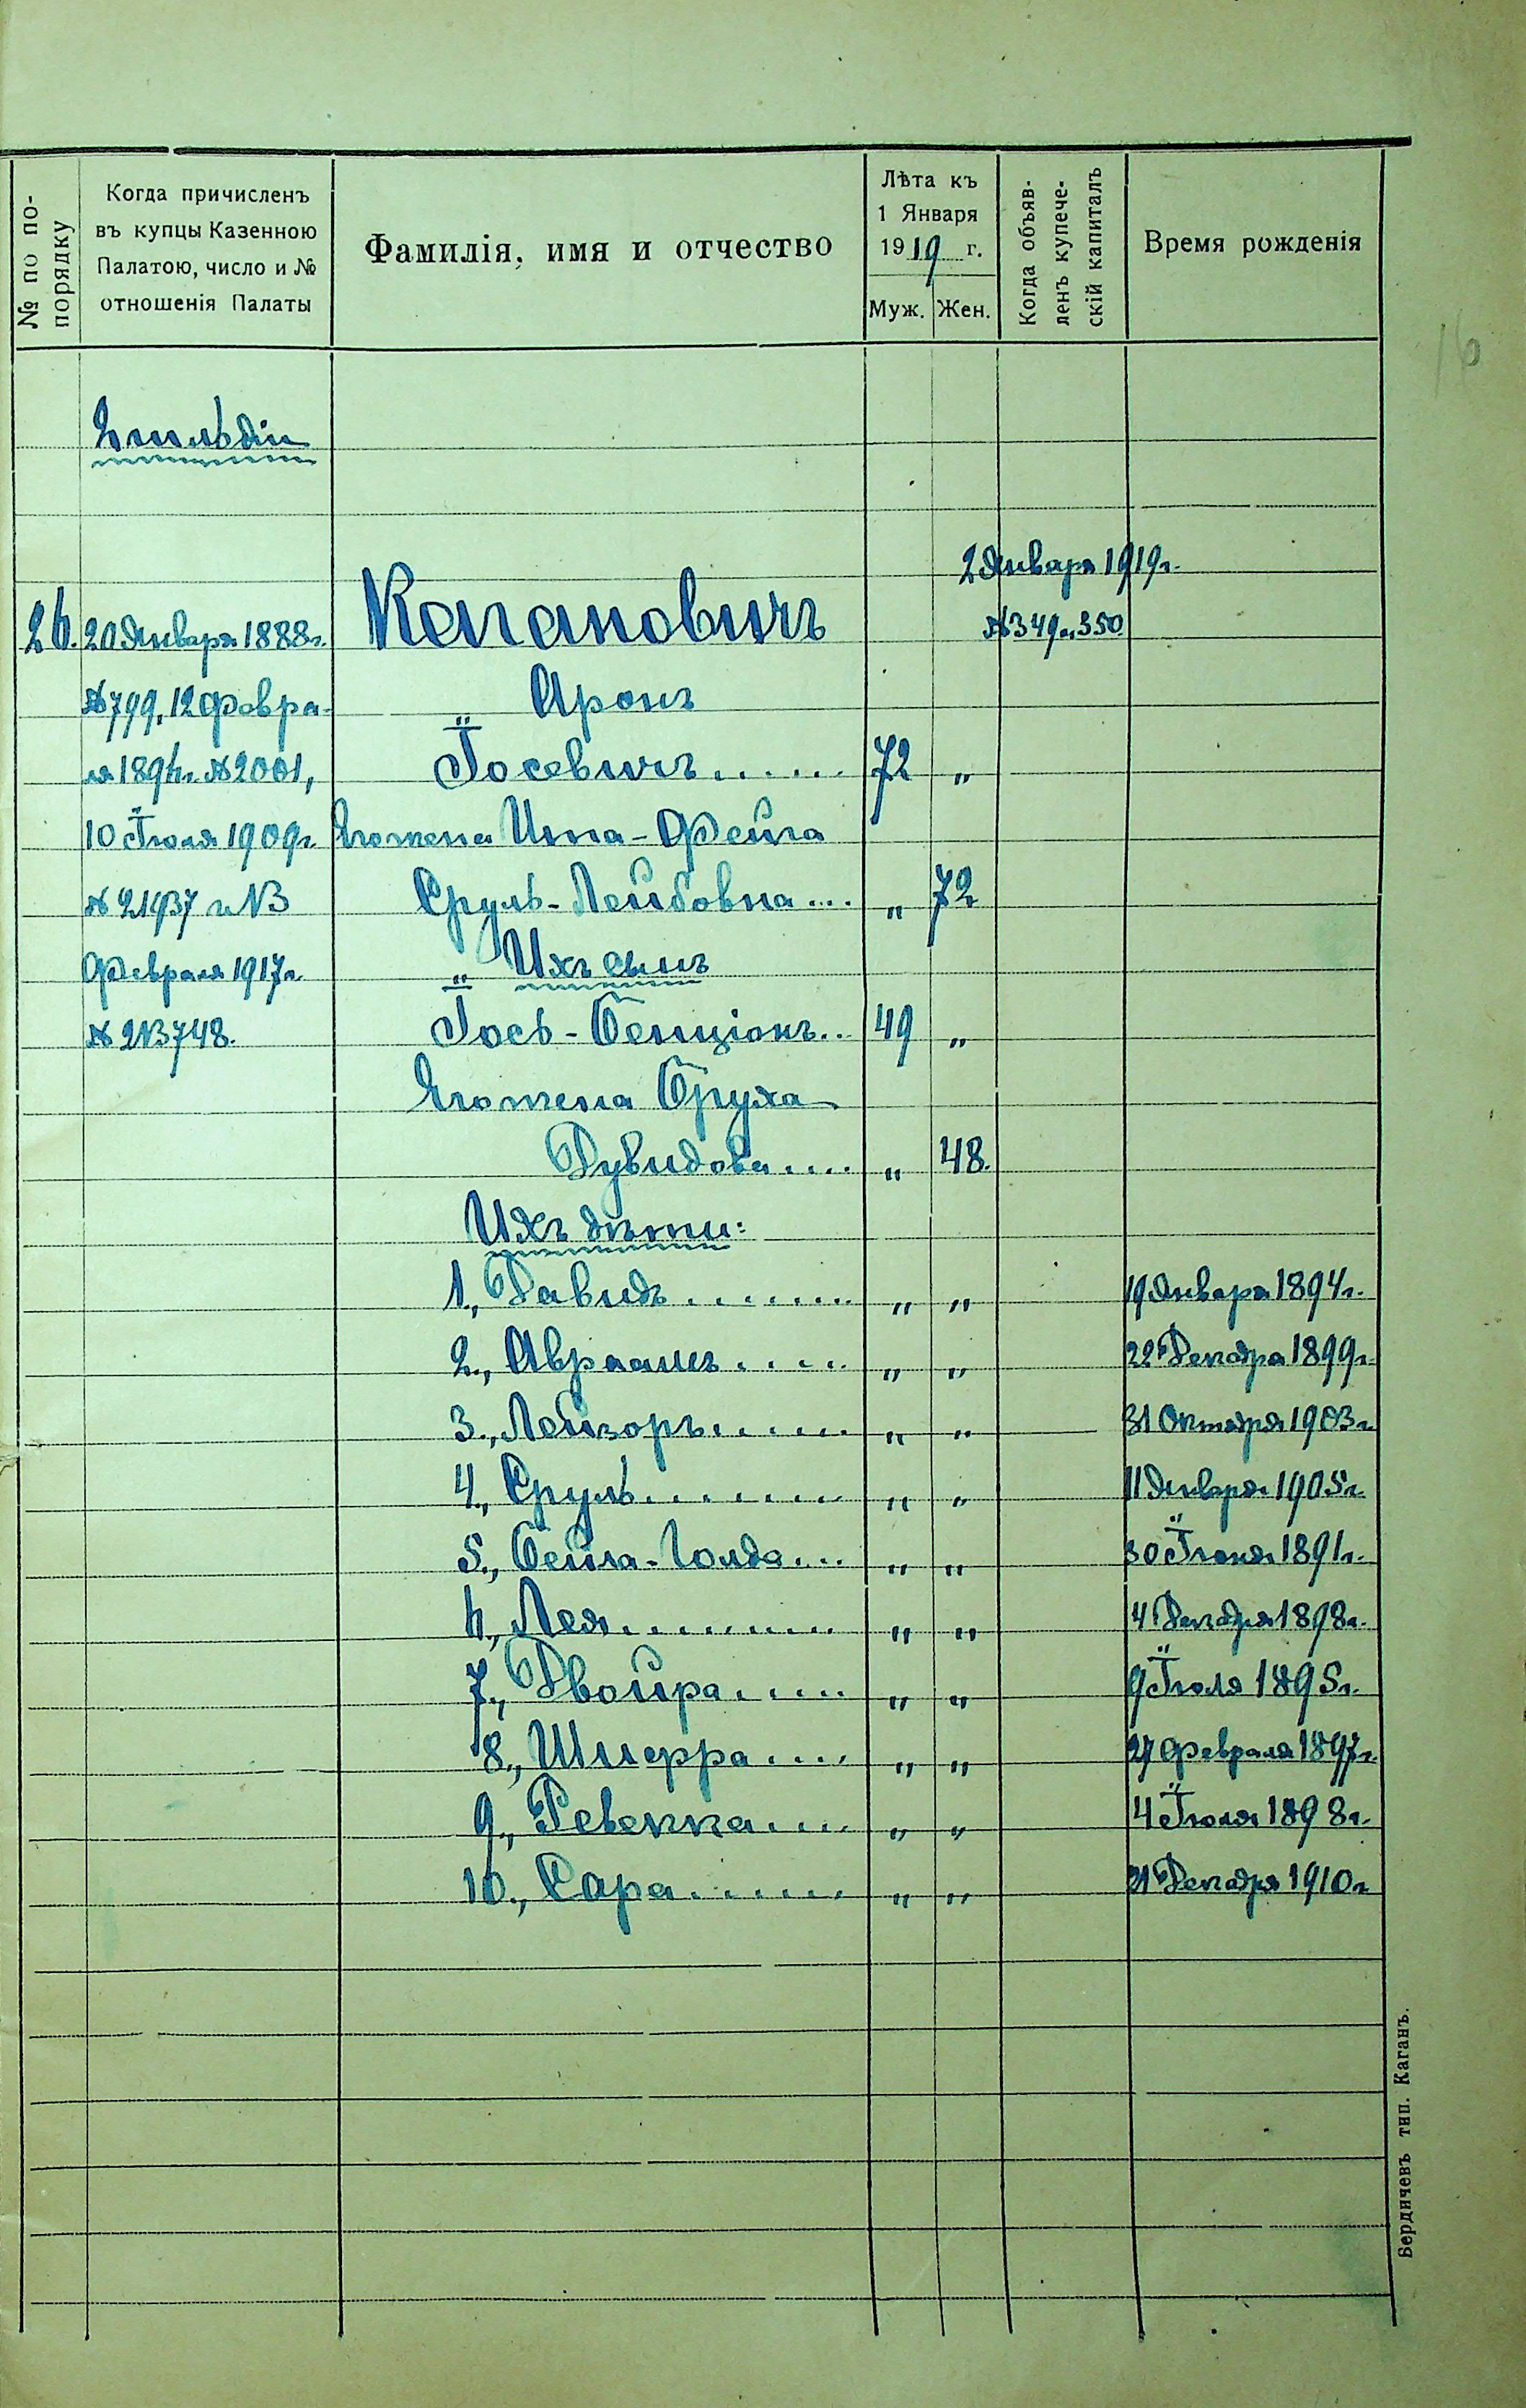 № по по-
порядку
Когда причисленъ
въ купцы Казенною
Палатою, число и №
отношенія Палаты
Фамилія, имя и отчество
Лѣта къ
1 Января
1919 г.
Муж. Жен.
Когда объяв-
ленъ купече-
скій капиталъ
Время рожденія
16
2 Января 1919 г.
26. 20 Января 1888 г. Кагановичъ №349 и 350
№ 799, 12 Февра- Аронъ
ля 1896 г. № 2001, Іосевичъ...... 72 „
10 Іюля 1909 г. Его жена Ита-Фейга
№ 21437 и 13 Сруль-Лейбовна... „ 72
Февраля 1917 г. Ихъ сынъ
№ 213748. Іось-Бенціонъ.. 49 „
Его жена Бруха
Дувидова.... „ 48.
Ихъ дѣти:
1., Давидъ........ „ „ 19 Января 1894 г.
2., Авраамъ..... „ „ 22 Декабря 1899 г.
3., Лейзоръ...... „ „ 31 Октября 1903 г.
4., Сруль........ „ „ 11 Января 1905 г.
5., Бейла-Голда... „ „ 30 Іюня 1891 г.
6., Лея.......... „ „ 4 Декабря 1898 г.
7., Двойра..... „ „ 9 Іюля 1895 г.
8., Шифра.... „ „ 27 Февраля 1897 г.
9., Ревекка.... „ „ 4 Іюля 1898 г.
10., Сара...... „ „ 21 Декабря 1910 г.
Бердичевъ тип. Каганъ.